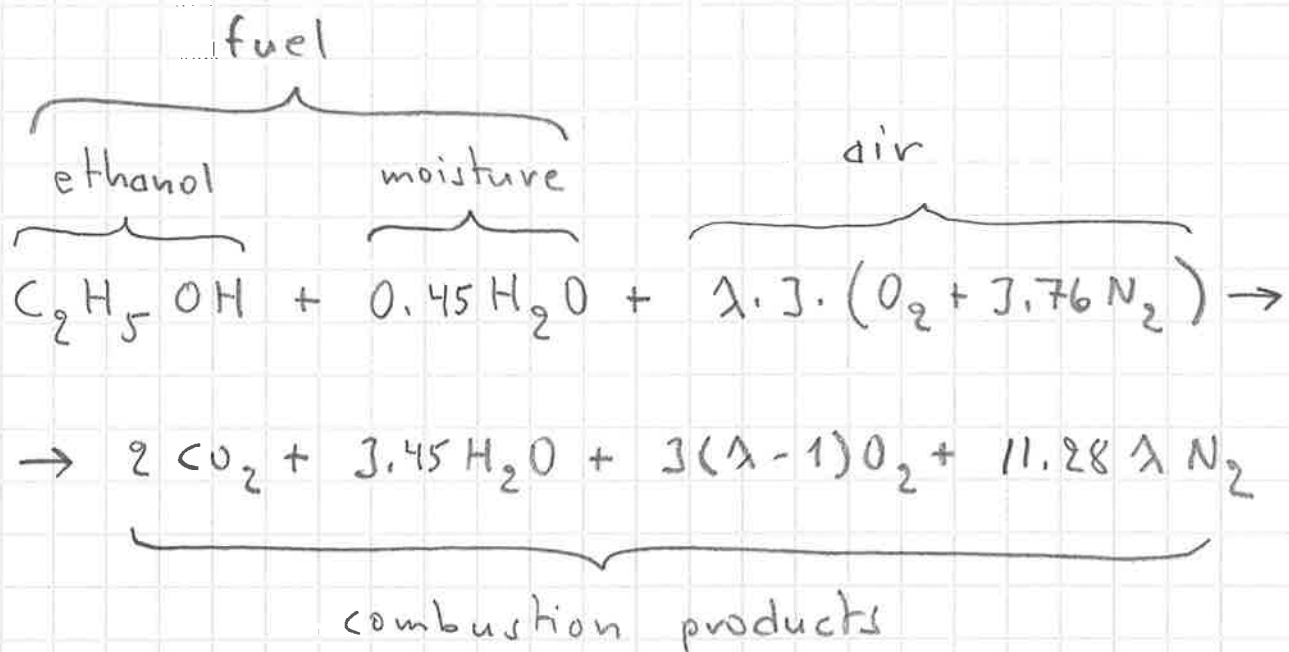 fuel
ethanol moisture air
C₂H₅OH + 0.45 H₂O + λ·3·(O₂ + 3.76 N₂) →
→ 2 CO₂ + 3.45 H₂O + 3(λ-1)O₂ + 11.28 λ N₂
combustion products